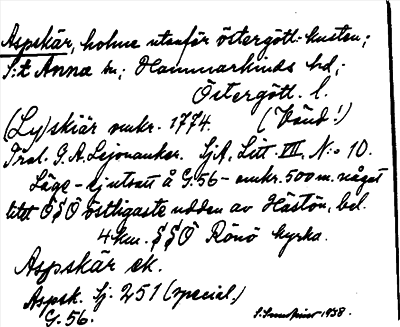 Aspskär, holme utanför östergötl. kusten;
S:t Anna sn; Hammarkinds hd;
Östergötl. l.
(Ly)skiär omkr. 1774. (Vänd!)
G. A. Lejonanker. SjA, Litt. III, N:o 10.
Läge - ej utsatt å G. 56 - omkr. 500 m. något
ÖSÖ östligaste udden av Håstön, bel.
4 km. SSÖ Rönö kyrka.
Aspskär ek.
Aspsk. Sj. 251 (special.)
G. 56. 1938.